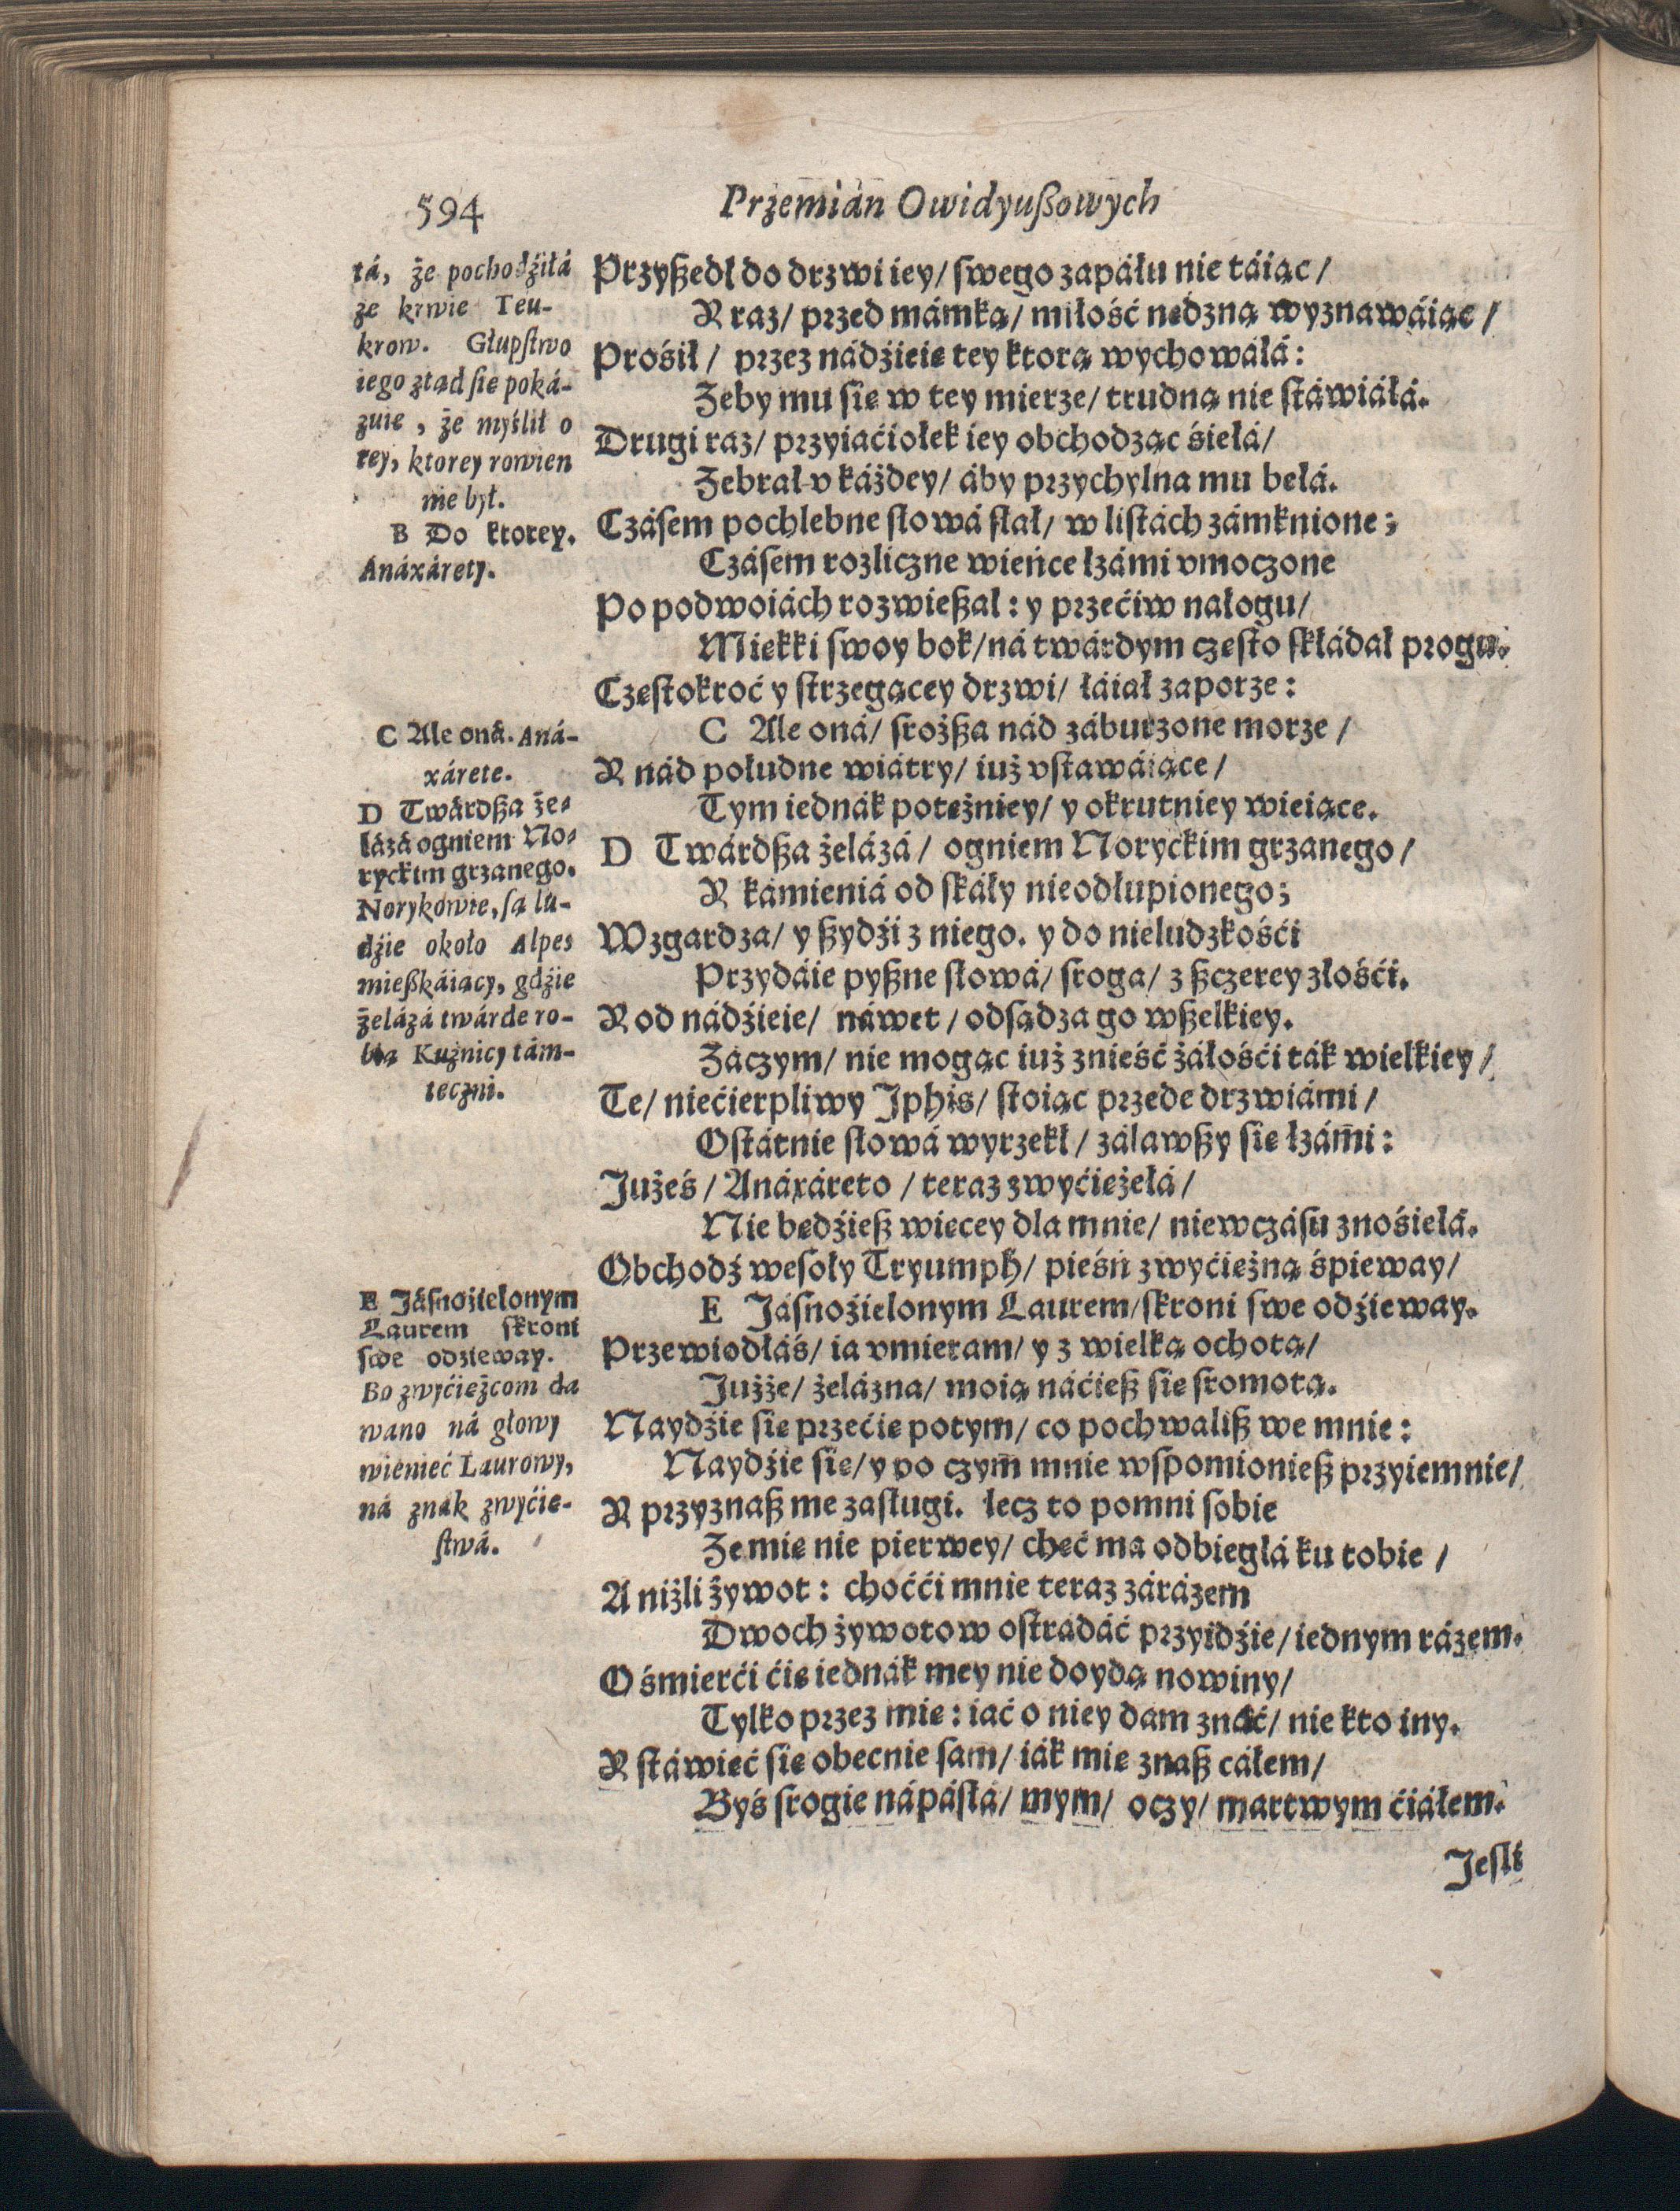 594
Przemián Owidyuszowych
tá, że pochodźiłá
ze krwie Teu-
krow. Głupstwo
iego ztąd się poká-
zuie, że myślił o
tey, ktorey rowien
nie był.
B Do ktorey.
Anáxárety.
C Ale oná. Aná-
xárete.
D Twárdsza że-
lázá ogniem No-
ryckim grzanego.
Norykowie, są lu-
dźie około Alpes
mieszkáiący, gdźie
żelázá twárde ro-
bią Kuźnicy tám-
teczni.
E Jásnoźielonym
Laurem skroni
swe odźieway.
Bo zwyćiężcom da
wano ná głowy
wieniec Laurowy,
ná znák zwyćię-
stwá.
Przyszedł do drzwi iey/ swego zapáłu nie táiąc/
Y raz/ przed mámką/ miłość nędzną wyznawáiąc/
Prośił/ przez nádźieię tey ktorą wychowáłá:
Zeby mu się w tey mierze/ trudną nie stáwiáłá.
Drugi raz/ przyiaćiołek iey obchodząc śiełá/
Zebrał v káżdey/ áby przychylna mu bełá.
Czásem pochlebne słowá słał/ w listách zámknione;
Czásem rozliczne wieńce łzámi vmoczone
Po podwoiách rozwieszał: y przećiw nałogu/
Miękki swoy bok/ ná twárdym często składał progu.
Częstokroć y strzegącey drzwi/ łáiał zaporze:
C Ale oná/ sroższa nád záburzone morze/
Y nád połudne wiátry/ iuż vstawáiące/
Tym iednák potężniey/ y okrutniey wieiące.
D Twárdsza żelázá/ ogniem Noryckim grzanego/
Y kámieniá od skáły nieodłupionego;
Wzgardza/ y szydźi z niego. y do nieludzkośći
Przydáie pyszne słowá/ sroga/ z szczerey złośći.
Y od nádźieie/ náwet/ odsądza go wszelkiey.
Záczym/ nie mogąc iuż znieść żáłośći ták wielkiey/
Te/ niećierpliwy Jphis/ stoiąc przede drzwiámi/
Ostátnie słowá wyrzekł/ zálawszy się łzám̃i:
Jużeś/ Anáxáreto/ teraz zwyćiężełá/
Nie będźiesz więcey dla mnie/ niewczásu znośiełá.
Obchodź wesoły Tryumph/ pieśń zwyćiężną śpieway/
E Jásnoźielonym Laurem/ skroni swe odźieway.
Przewiodłáś/ ia vmieram/ y z wielką ochotą/
Jużże/ żelázna/ moią náćiesz się sromotą.
Naydźie się przećię potym/ co pochwalisz we mnie:
Naydźie się/ y po czym̃ mnie wspomioniesz przyiemnie/
Y przyznasz me zasługi. lecz to pomni sobie
Ze mię nie pierwey/ chęć ma odbiegłá ku tobie/
A niżli żywot: choćći mnie teraz zárázem
Dwoch żywotow ostradáć przyidźie/ iednym rázem.
O śmierći ćię iednák mey nie doydą nowiny/
Tylko przez mię: iać o niey dam znáć/ nie kto iny.
Y stáwięć się obecnie sam/ iák mię znasz cáłem/
Byś srogie nápásłá/ mym/ oczy/ martwym ćiáłem.
Jesli